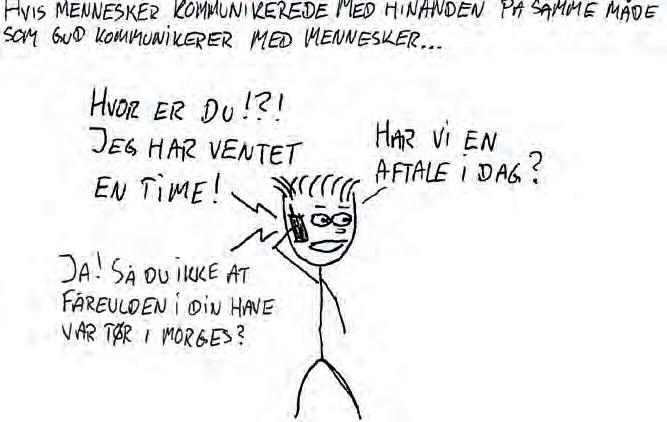 HVIS MENNESKER KOMMUNIKEREDE MED HINANDEN PÅ SAMME MÅDE
SOM GUD KOMMUNIKERER MED MENNESKER...
HVOR ER DU!?!
JEG HAR VENTET
EN TIME!
HAR VI EN
AFTALE I DAG?
JA! SÅ DU IKKE AT
FÅREULDEN I DIN HAVE
VAR TØR I MORGES?